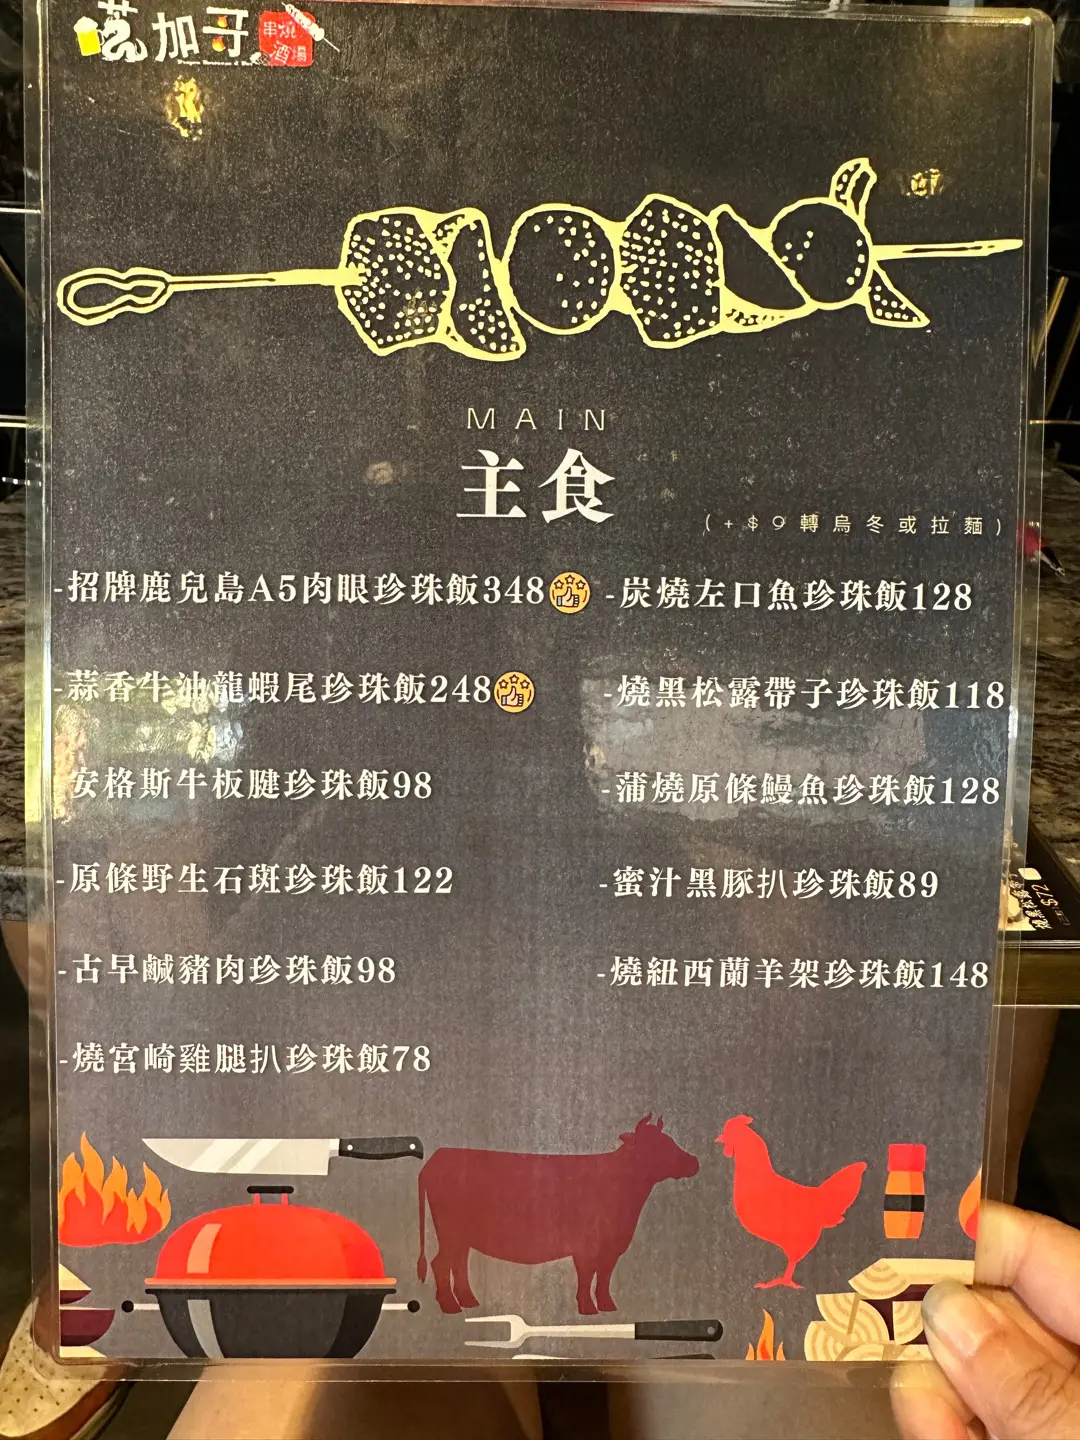 加
串燒
酒場
MAIN
主食
(+$9轉烏冬或拉麵)
-招牌鹿兒島A5肉眼珍珠飯348
-蒜香牛油龍蝦尾珍珠飯248
安格斯牛板腱珍珠飯98
-原條野生石斑珍珠飯122
-古早鹹豬肉珍珠飯98
-燒宮崎雞腿扒珍珠飯78
-炭燒左口魚珍珠飯128
-燒黑松露帶子珍珠飯118
-蒲燒原條鰻魚珍珠飯128
-蜜汁黑豚扒珍珠飯89
-燒紐西蘭羊架珍珠飯148
$72